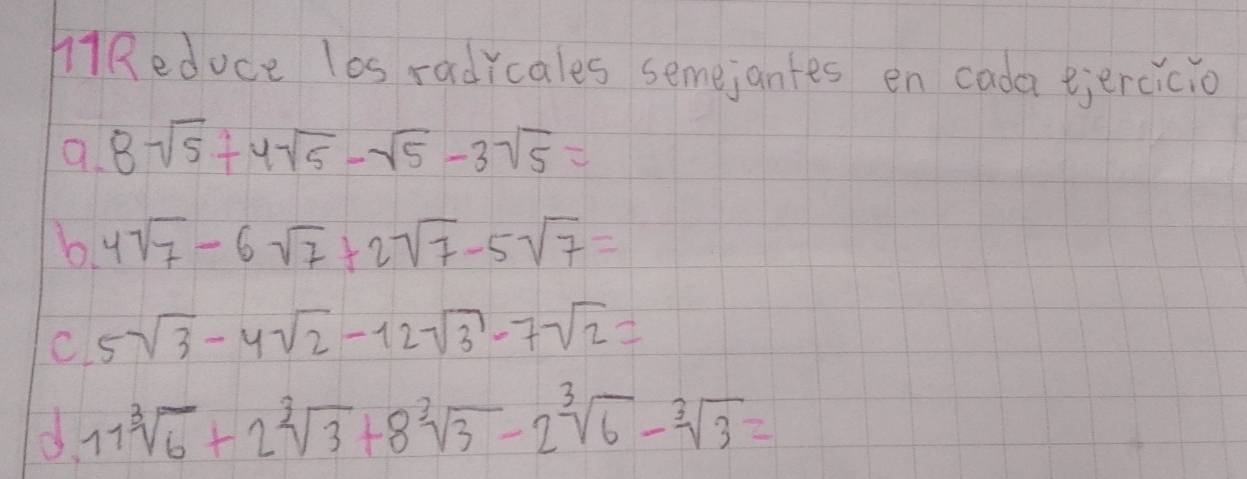 11 Reduce los radicales semejantes en cada ejercicio
a. 8√5 + 4√5 - √5 - 3√5 =
b. 4√7 - 6√7 + 2√7 - 5√7 =
c. 5√3 - 4√2 - 12√3 - 7√2 =
d. 11∛6 + 2∛3 + 8∛3 - 2∛6 - ∛3 =